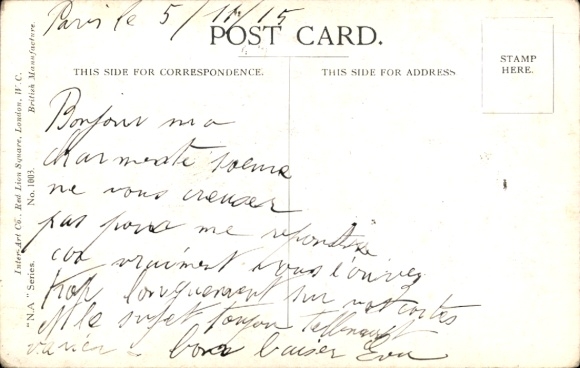 Paris le 5/11/15
POST CARD.
THIS SIDE FOR CORRESPONDENCE.
THIS SIDE FOR ADDRESS
STAMP
HERE.
Bonjour ma
charmente
ne vous creuser
pas pour me
car vraiment vous
trop longuement sur vos cartes
le sujet toujou
varier - bons baiser Eva
"N.A" Series. No. 1803. British Manufacture.
Inter-Art Co., Red Lion Square, London, W.C.